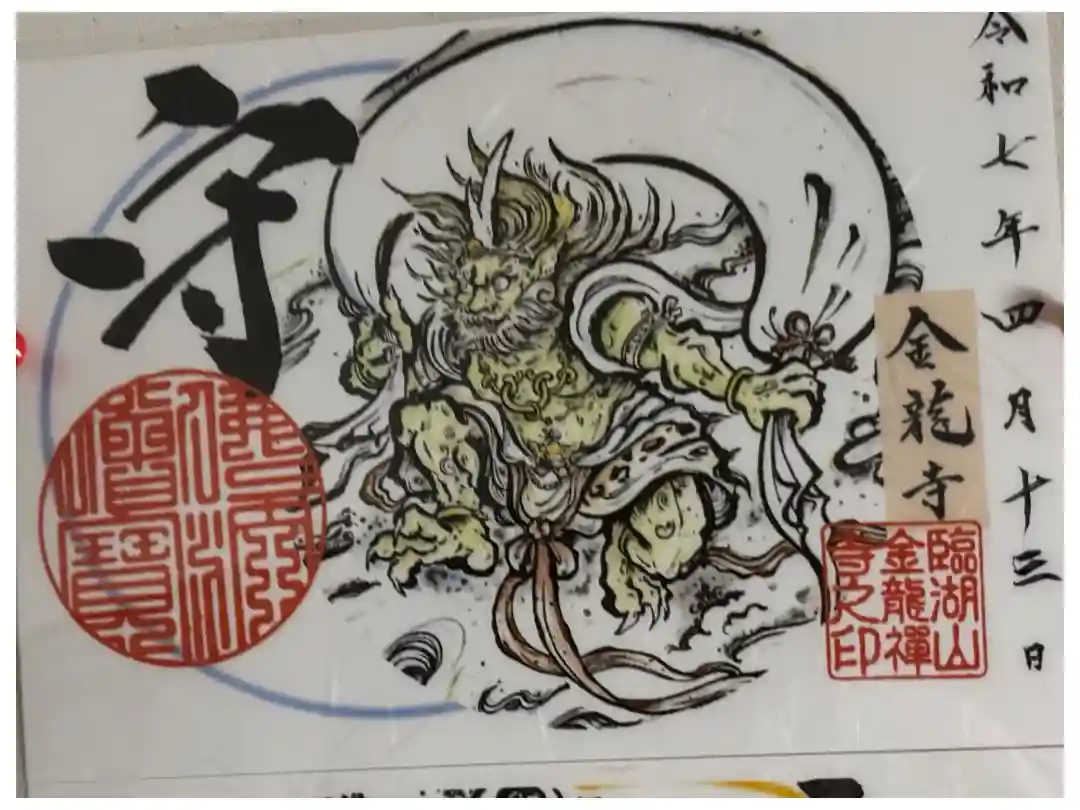 令和七年四月十三日
金龍寺
臨湖山
金龍禪
寺之印
守